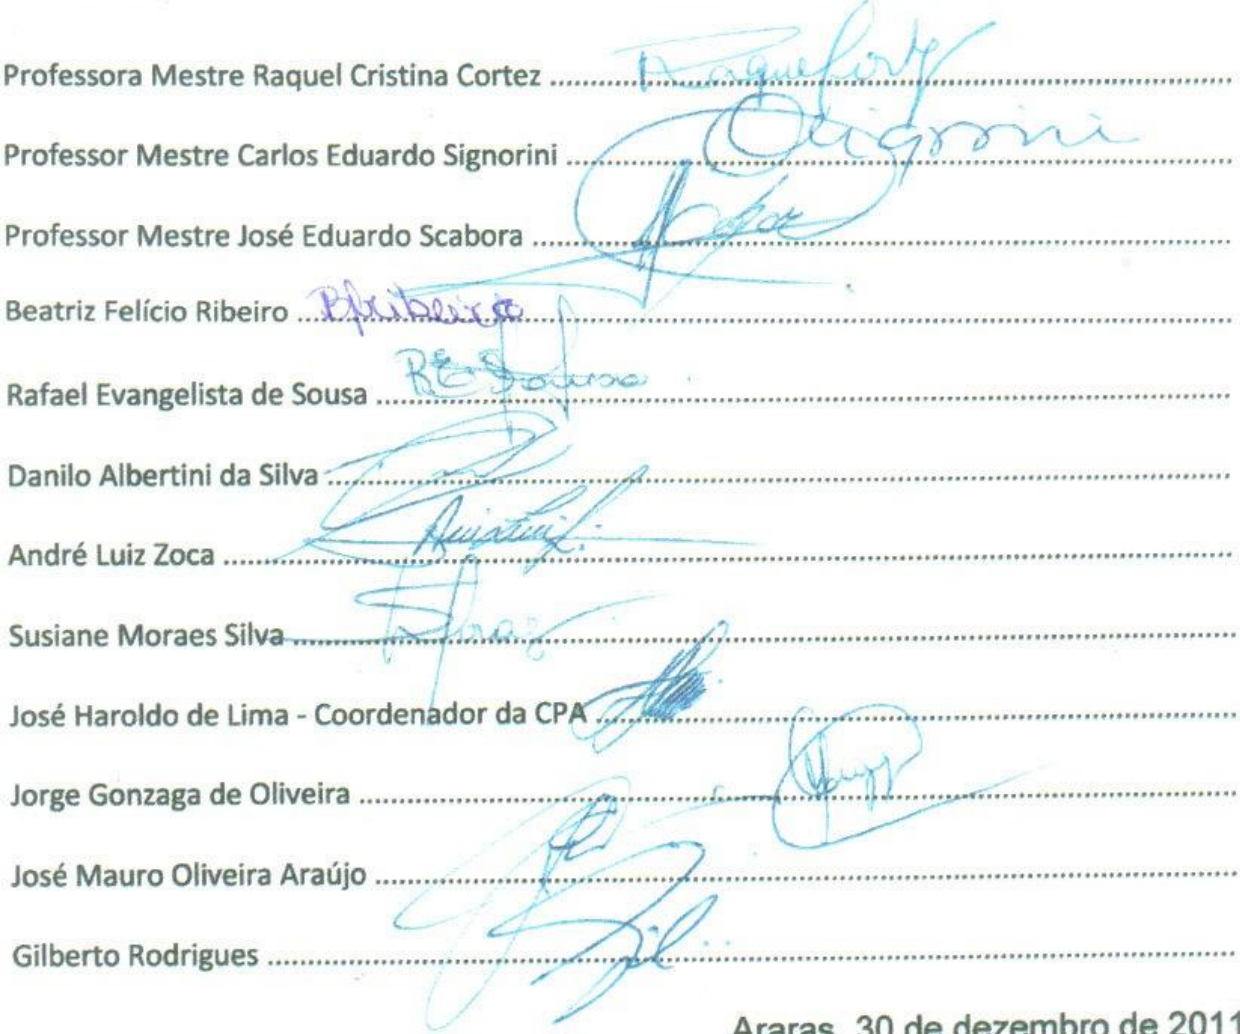 Professora Mestre Raquel Cristina Cortez ..................... Raquel Cortez
Professor Mestre Carlos Eduardo Signorini ..................... Signorini
Professor Mestre José Eduardo Scabora .....................
Beatriz Felício Ribeiro ..................... BfRibeiro
Rafael Evangelista de Sousa ..................... RESousa
Danilo Albertini da Silva .....................
André Luiz Zoca .....................
Susiane Moraes Silva .....................
José Haroldo de Lima - Coordenador da CPA .....................
Jorge Gonzaga de Oliveira .....................
José Mauro Oliveira Araújo .....................
Gilberto Rodrigues .....................
Araras, 30 de dezembro de 2011